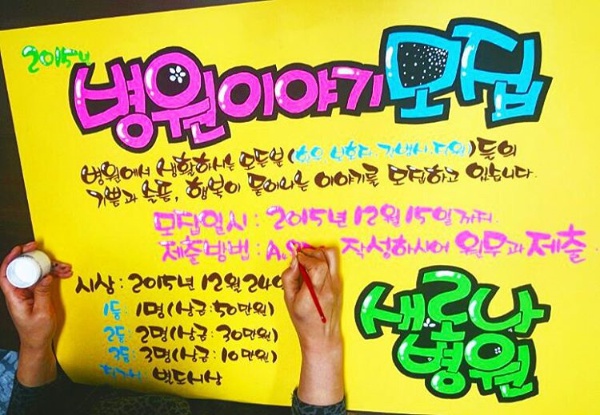 2015년
병원이야기모집
병원에서 생활하시는 모든분 ( )들의
기쁨과 슬픔, 행복이 묻어나는 이야기를 모집하고 있습니다.
모집일시 : 2015년 12월 15일까지
제출방법 : 작성하시어 원무과 제출
시상 : 2015년 12월 24일
1등 1명 (상금 : 50만원)
2등 2명 (상금 : 30만원)
3등 3명 (상금 : 10만원)
별도시상
새로나
병원